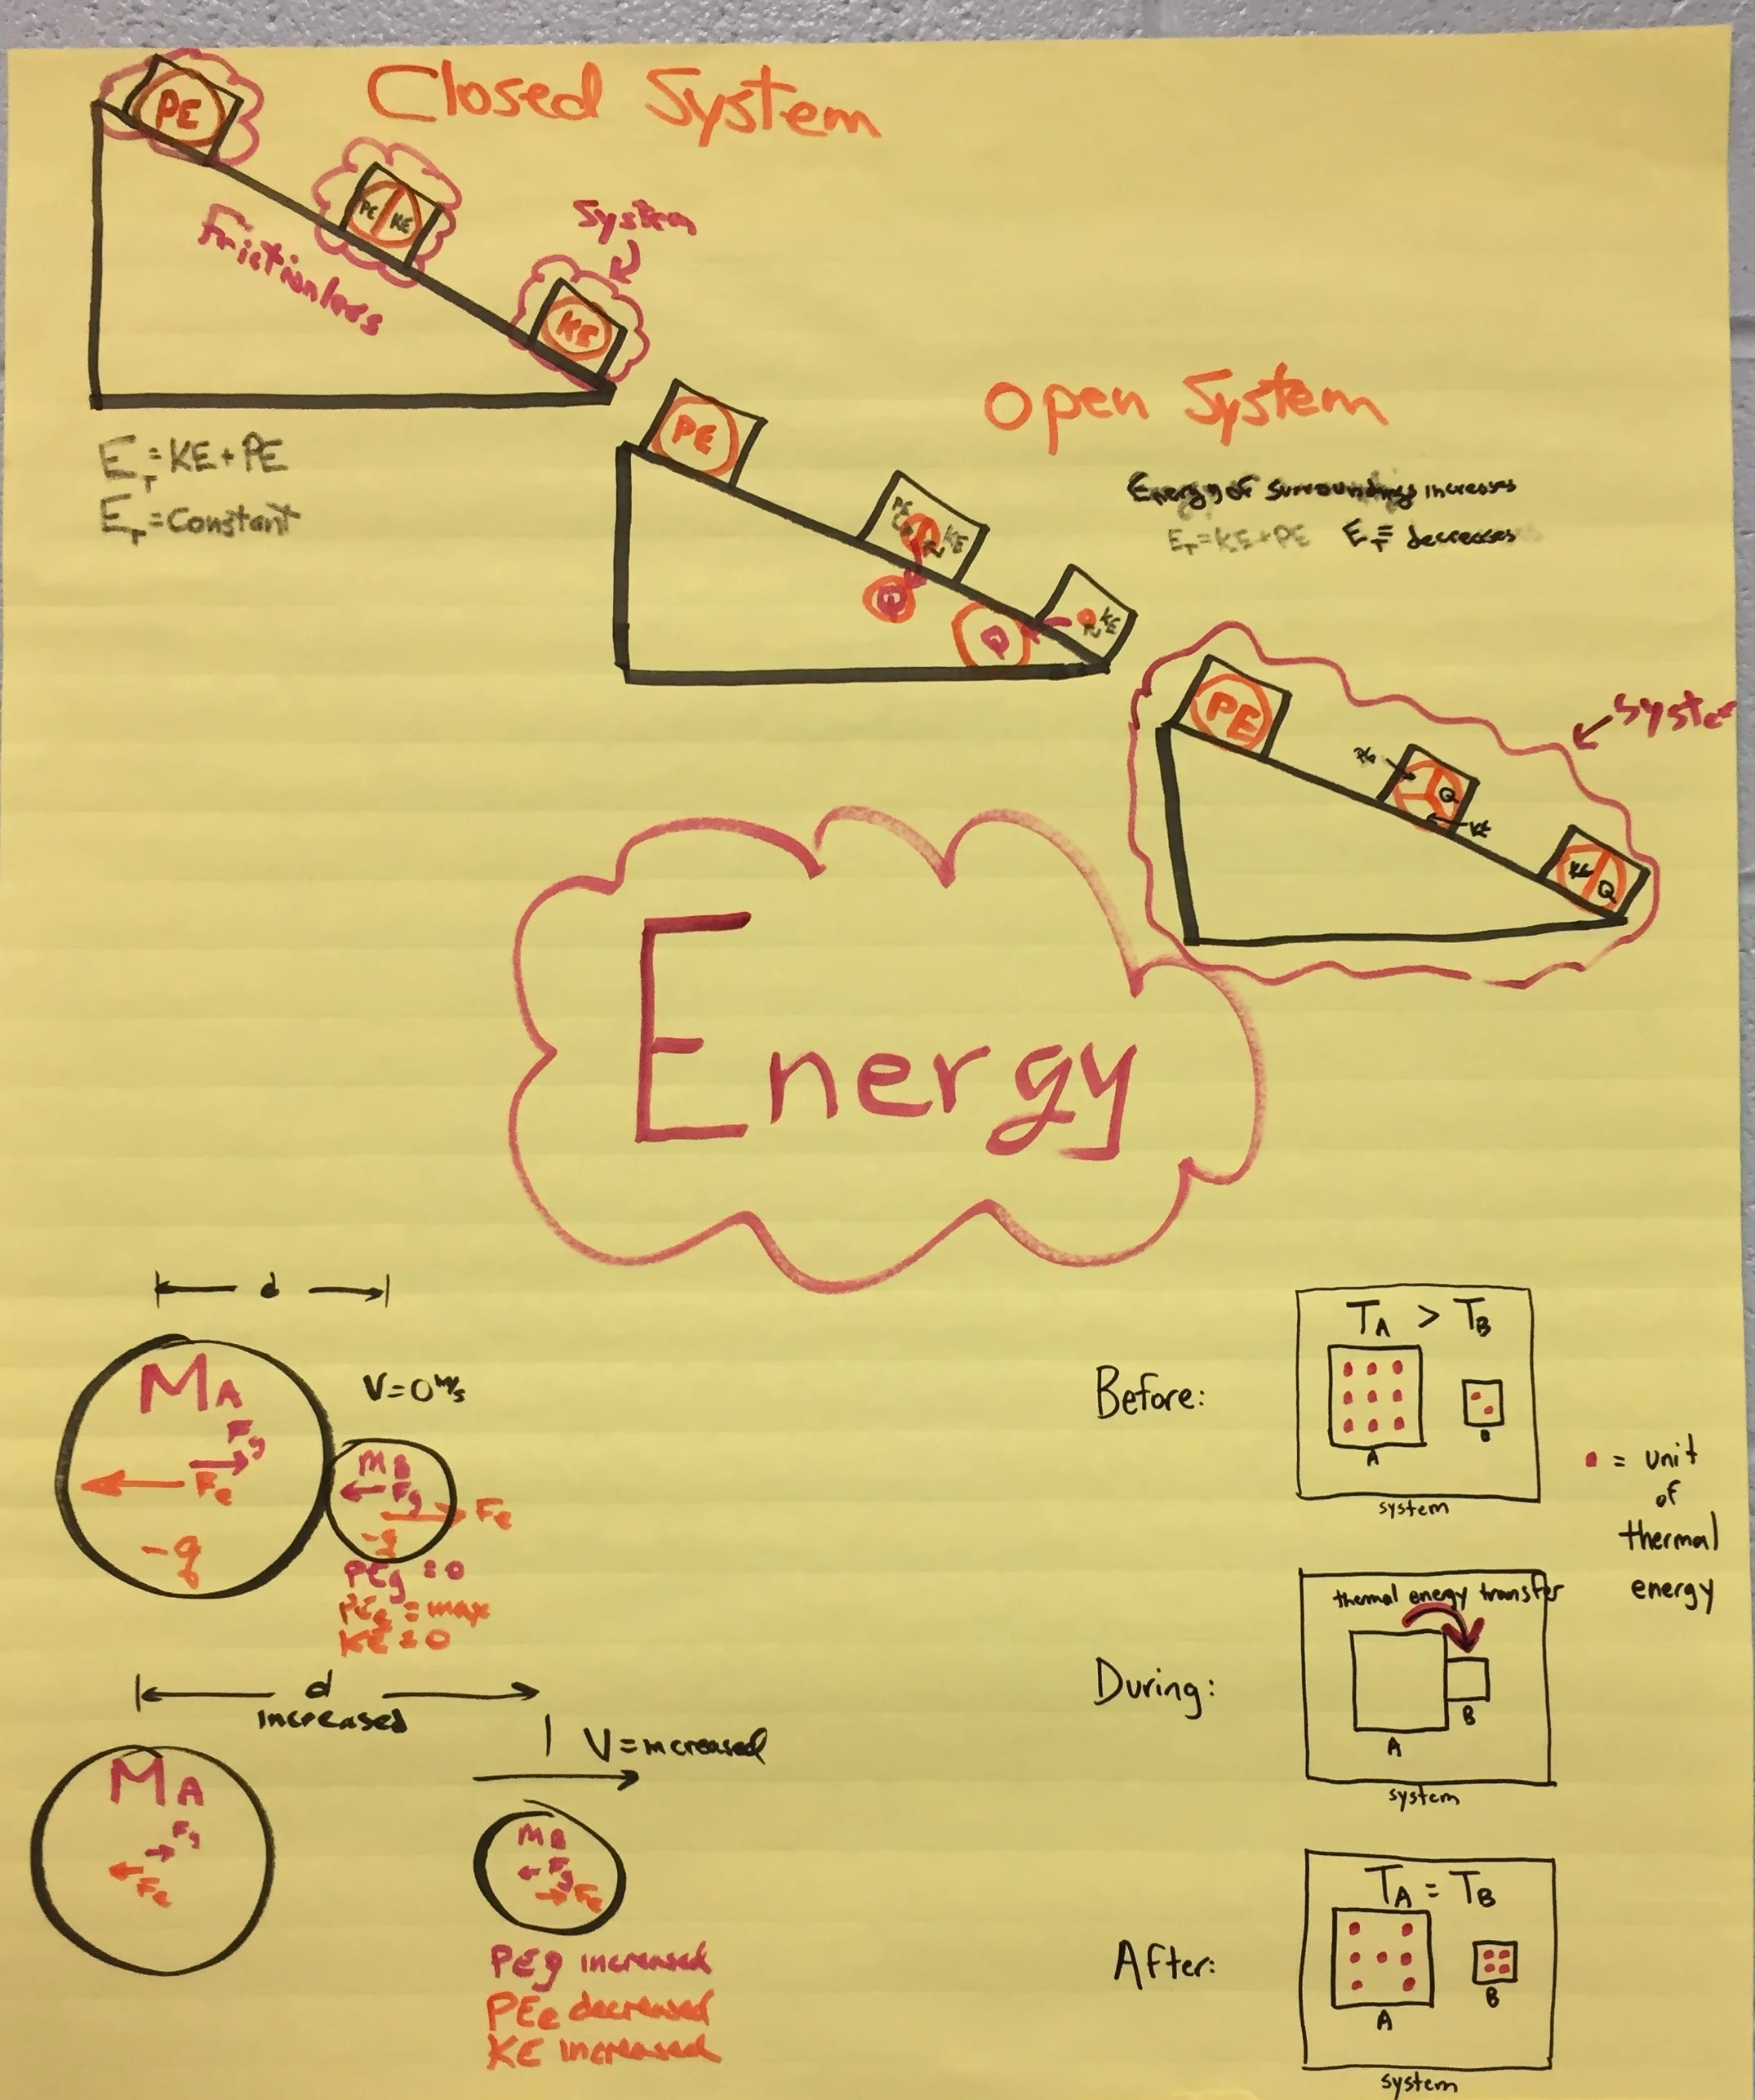 Closed System
PE
PE KE
KE
Frictionless
System
E_T = KE + PE
E_T = Constant
Open System
Energy of Surroundings increases
E_T = KE + PE E_T = decreases
PE
PE KE
Q
Q
KE
PE
PE
Q
KE
KE Q
Energy
d
M_A
V = 0 m/s
F_g
F_e
-q
M_B
F_g
F_e
-q
PE_g = 0
PE_e = max
KE = 0
d
increased
V = increased
M_A
F_g
F_e
M_B
F_g
F_e
PEg increased
PEe decreased
KE increased
Before:
T_A > T_B
A
B
system
= unit
of
thermal
energy
During:
thermal energy transfer
A
B
system
After:
T_A = T_B
A
B
system